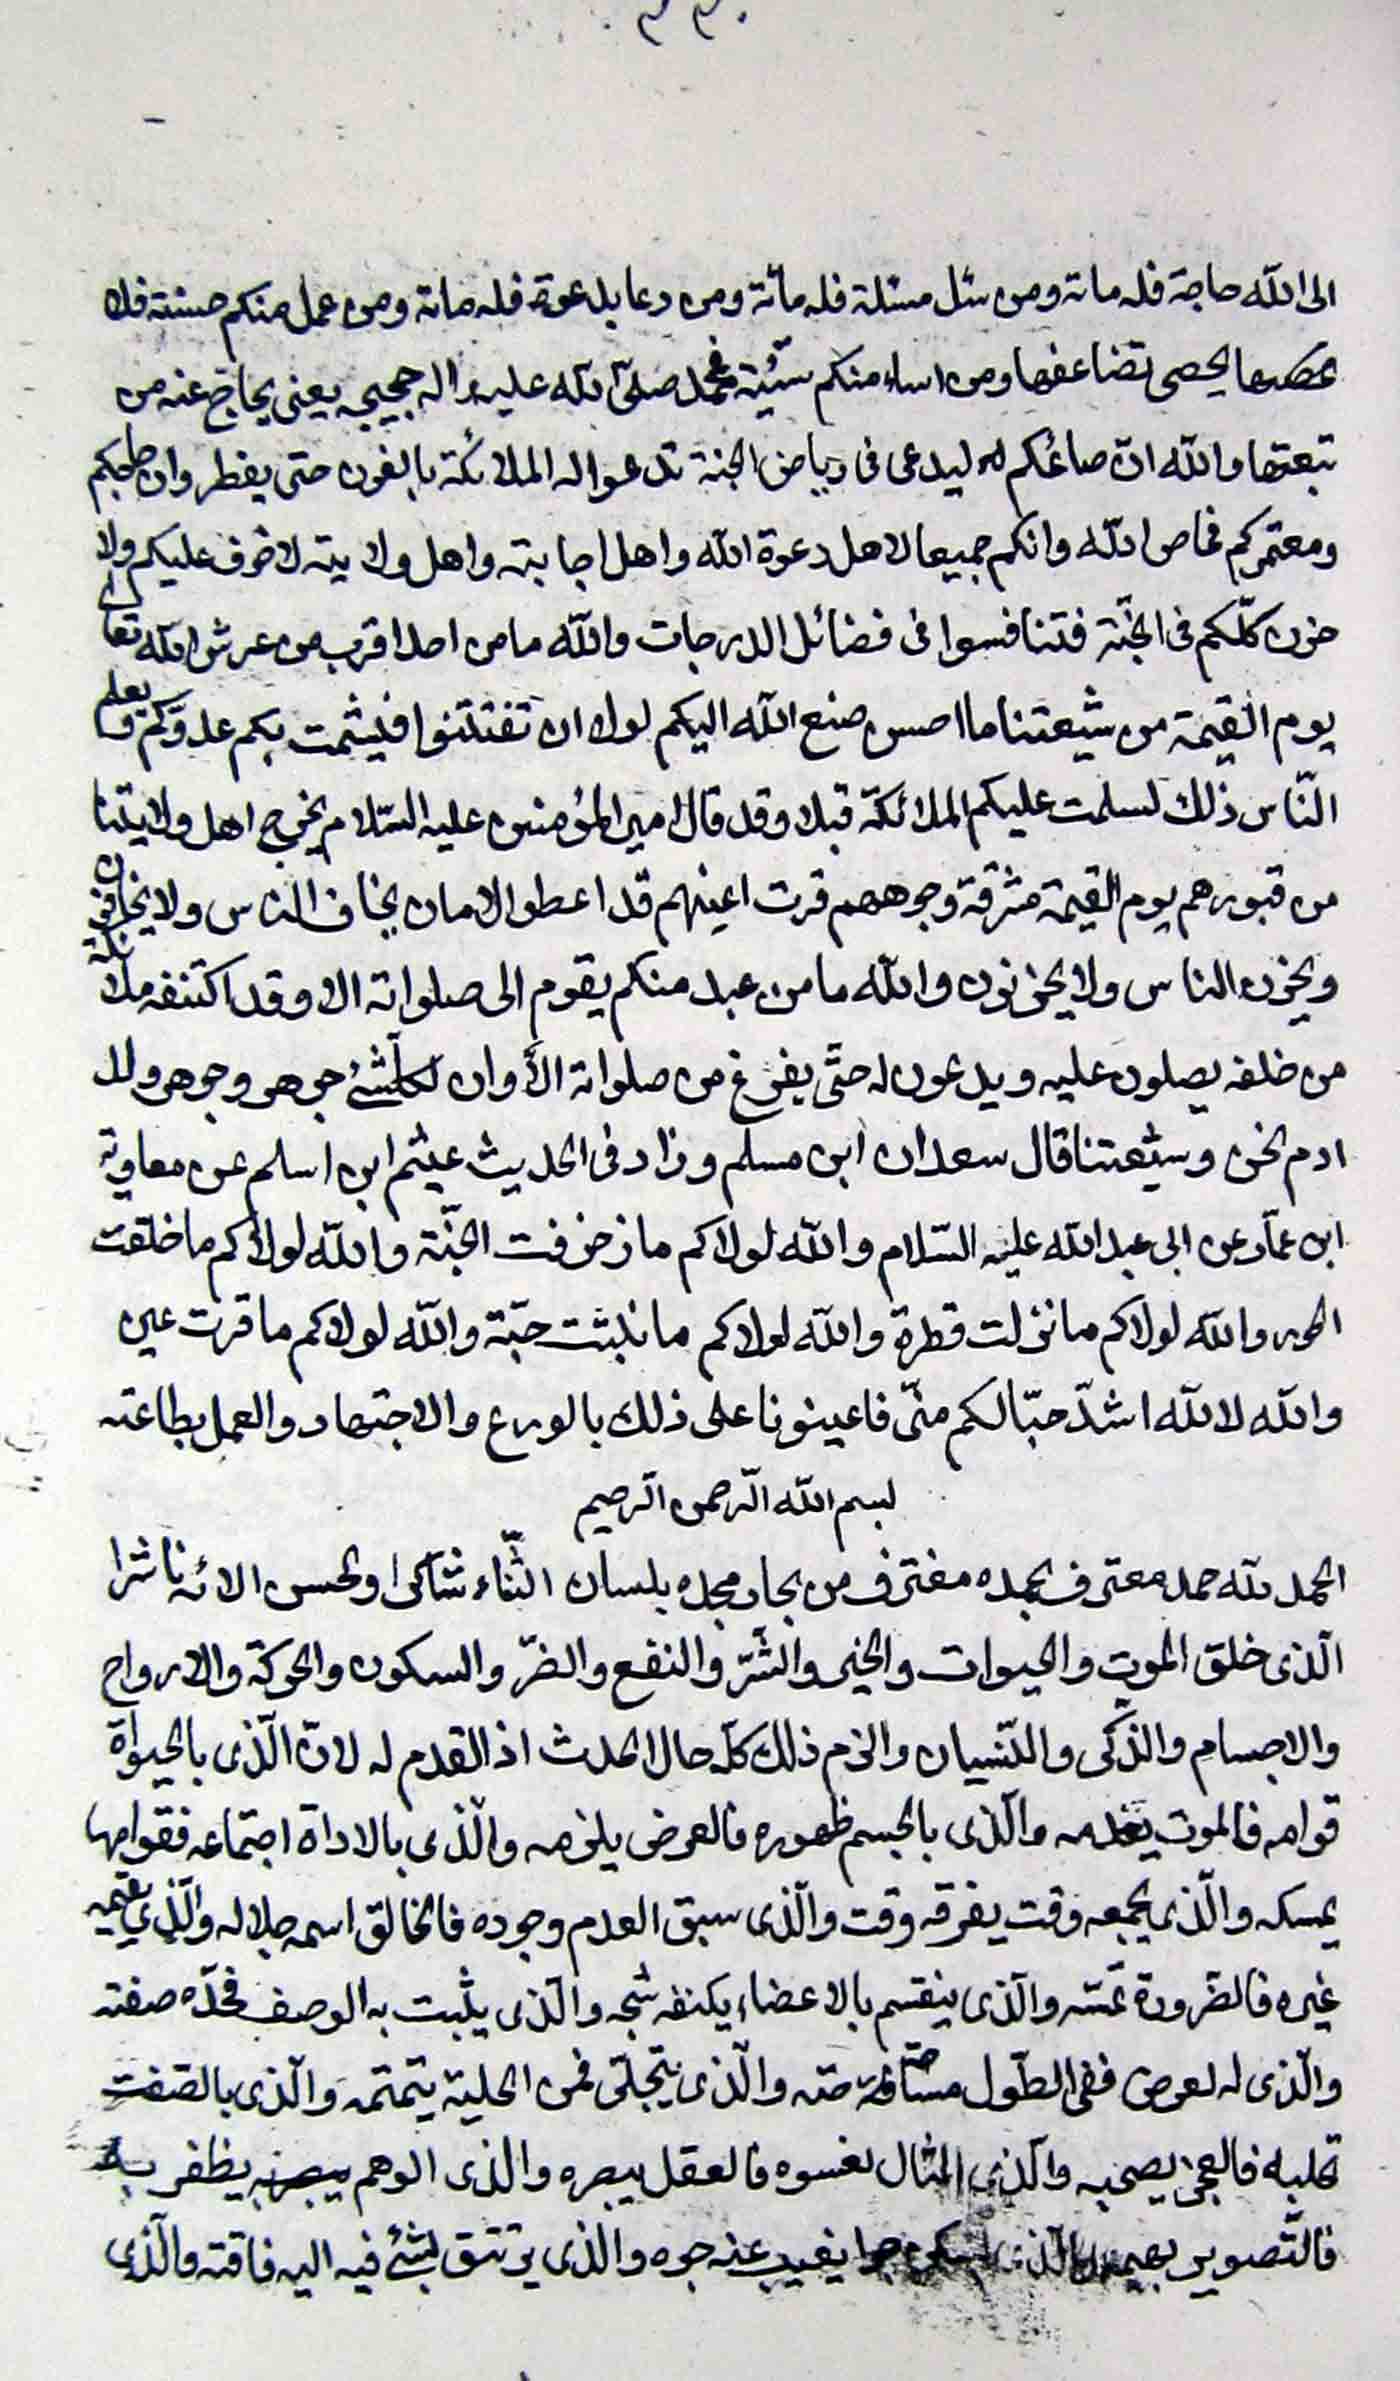 ٣٣٠
الى الله حاجة فله مائة ومن سئل مسئلة فله مائة ومن دعا بدعوة فله مائة ومن عمل منكم حسنة فلا
يحصى تضاعفها ومن اساء منكم سيّئة فمحمد صلّى الله عليه واله حجيجه يعنى يحاج عنه من
تبعتها والله انّ صائمكم ليدعى فى رياض الجنة تدعوا له الملائكة بالفوز حتى يفطر وان حاجكم
ومعتمركم لخاص الله وانكم جميعا لاهل دعوة الله واهل اجابته واهل ولايته لا خوف عليكم ولا
حزن كلّكم فى الجنّة فتنافسوا فى فضائل الدرجات والله ما من احد اقرب من عرش الله تعالى
يوم القيمة من شيعتنا ما احسن صنع الله اليكم لولا ان تفتتنوا فيشمت بكم عدوّكم ويعلم
النّاس ذلك لسلمت عليكم الملائكة قبلا وقد قال امير المؤمنين عليه السّلام يخرج اهل ولايتنا
من قبورهم يوم القيمة مشرقة وجوههم قرت اعينهم قد اعطوا الامان يخاف الناس ولا يخافون
ويحزن الناس ولا يحزنون والله ما من عبد منكم يقوم الى صلواته الا وقد اكتنفه ملائكة
من خلفه يصلون عليه ويدعون له حتّى يفرغ من صلواته الا وان لكلّ شئ جوهر وجوهر ولد
ادم نحن وشيعتنا قال سعدان ابن مسلم وزاد فى الحديث عيثم ابن اسلم عن معاوية
ابن عمّار عن ابى عبد الله عليه السّلام والله لولاكم ما زخرفت الجنّة والله لولاكم ما خلقت
الحور والله لولاكم ما نزلت قطرة والله لولاكم ما نبتت حبّة والله لولاكم ما قرت عين
والله لالله اشدّ حبّا لكم منّى فاعينونا على ذلك بالورع والاجتهاد والعمل بطاعته
بسم الله الرّحمن الرّحيم
الحمد لله حمد معترف بحمده مغترف من بحار مجده بلسان الثّناء شاكرا ولحسن الائه ناشرا
الّذى خلق الموت والحيوات والخير والشّرّ والنفع والضرّ والسكون والحركة والارواح
والاجسام والذّكر والنّسيان والزم ذلك كلّه حال الحدث اذ القدم له لانّ الّذى بالحيواة
قوامه فالموت يعدمه والّذى بالجسم ظهوره فالعرض يلزمه والّذى بالاداة اجتماعه فقوامها
يمسكه والّذى يجمعه وقت يفرقه وقت والّذى سبق العدم وجوده فالخالق اسمه جلاله والّذى يقيمه
غيره فالضّرورة تمسّه والّذى ينقسم بالاعضاء يكنفه شبحه والّذى يثبت به الوصف فحدّه صفته
والّذى له لعرض ففى الطّول مسّافة حته والّذى يتجلّى فمن الحلية يتمتمه والّذى بالصّفت
تحليه فالعجز يصحبه والّذى المثال لغسوه فالعقل يبصره والذى الوهم يظفر به
فالتّصوير يغيب عنه جوه والذى يرتتق بشئ فيه اليه فاقته والّذى